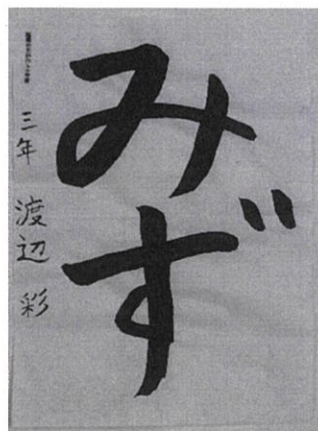 みず
三年 渡辺 彩